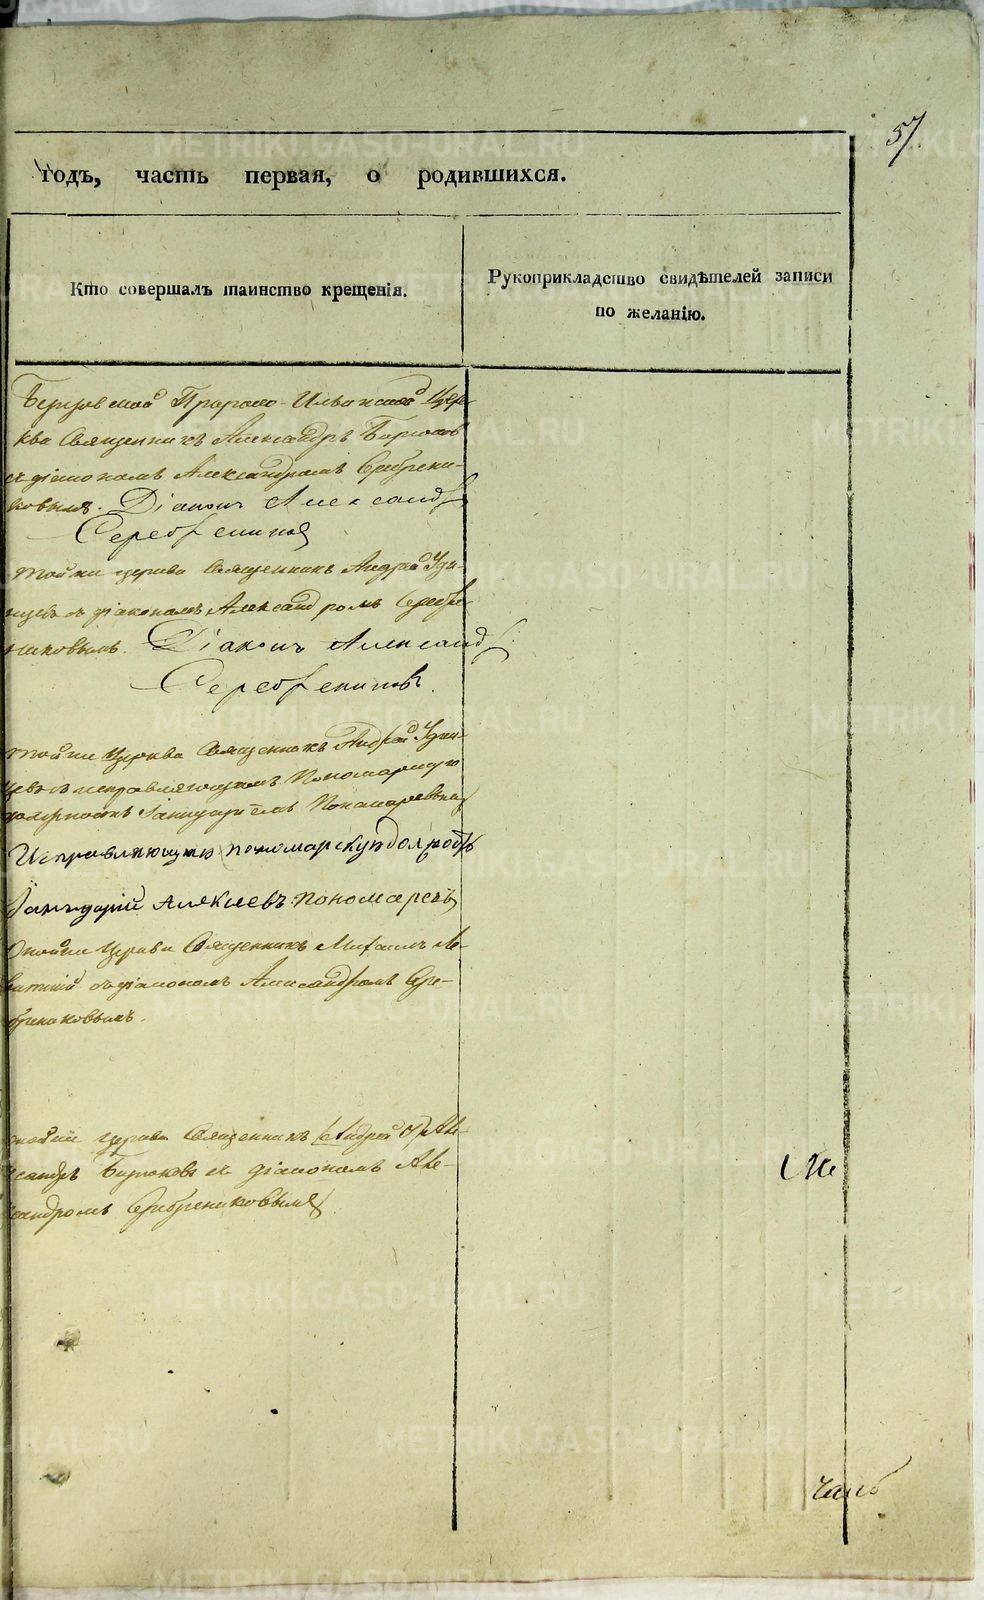 57.
годъ, часть первая, о родившихся.
Кто совершалъ таинство крещенія.
Рукоприкладство свидѣтелей записи
по желанію.
Пророко-Ильинской Цер-
кви Священникъ Александръ Бирюковъ
съ діакономъ Александромъ Сребрени-
ковымъ. Діаконъ Александръ
Серебрениковъ
тойже церкви Священникъ Андрей Удин-
цевъ съ діакономъ Александромъ Серебре-
никовымъ. Діаконъ Александръ
Серебрениковъ.
тойже Церкви Священникъ Андрей Удин-
цевъ съ исправляющимъ Пономарскую
должность Пономаревымъ
Исправляющій пономарскую должность
Алексіевъ Пономаревъ
тойже Церкви Священникъ Михаилъ Ле-
витскій съ діакономъ Александромъ Сре-
брениковымъ.
тойже церкви Священникъ (Андрей У) Але-
ксандръ Бирюковъ съ діакономъ Але-
ксандромъ Серебрениковымъ
METRIKI.GASO-URAL.RU